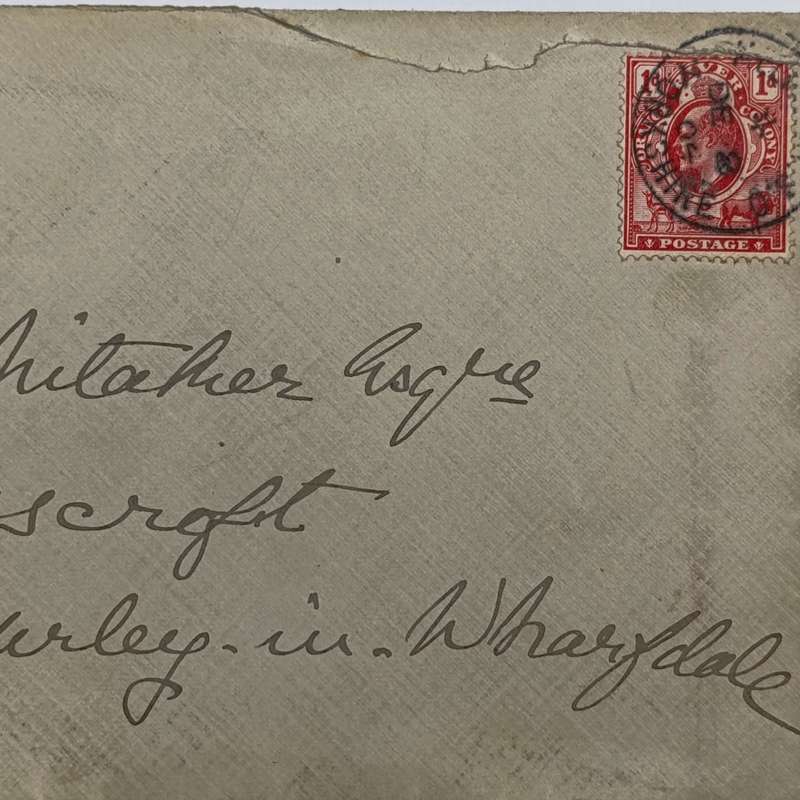 1d 1d
ORANGE RIVER COLONY
POSTAGE
hitaker Esqre
scroft
urley-in-Wharfdale